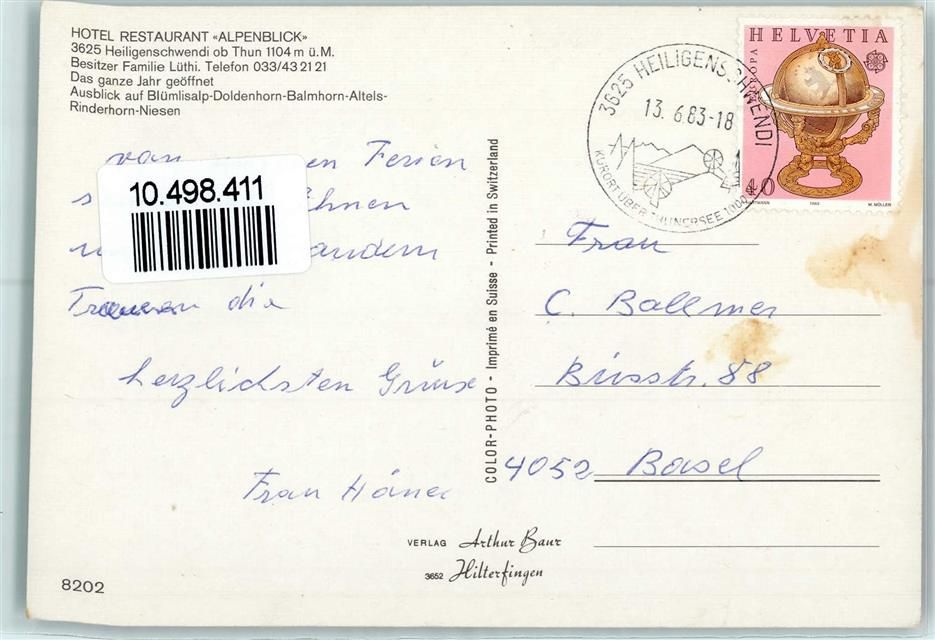 HOTEL RESTAURANT «ALPENBLICK»
3625 Heiligenschwendi ob Thun 1104 m ü.M.
Besitzer Familie Lüthi. Telefon 033/43 21 21
Das ganze Jahr geöffnet
Ausblick auf Blümlisalp-Doldenhorn-Balmhorn-Altels-
Rinderhorn-Niesen
von en Ferien
Ihnen
andern
Frauen die
herzlichsten Grüsse
Frau
10.498.411
8202
COLOR-PHOTO - Imprimé en Suisse - Printed in Switzerland
HELVETIA
EUROPA
40
1983
M. MÜLLER
3625 HEILIGENSCHWENDI
13.6.83-18
KURORT ÜBER THUNERSEE 1000
Frau
C. Ballmer
Birsstr. 88
4052 Basel
VERLAG Arthur Baur
3652 Hilterfingen